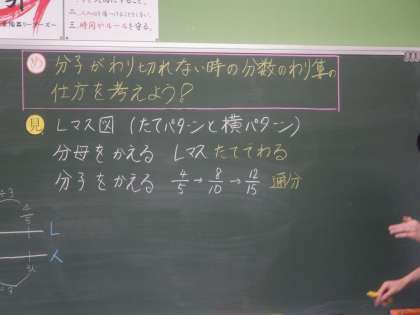 三、時間やルールを守る。
め 分子がわり切れない時の分数のわり算の
仕方を考えよう?
見 Lマス図 (たてパターンと横パターン)
分母をかえる Lマスたててわる
分子をかえる 4/5→8/10→12/15 通分
÷3
4/5
L
人